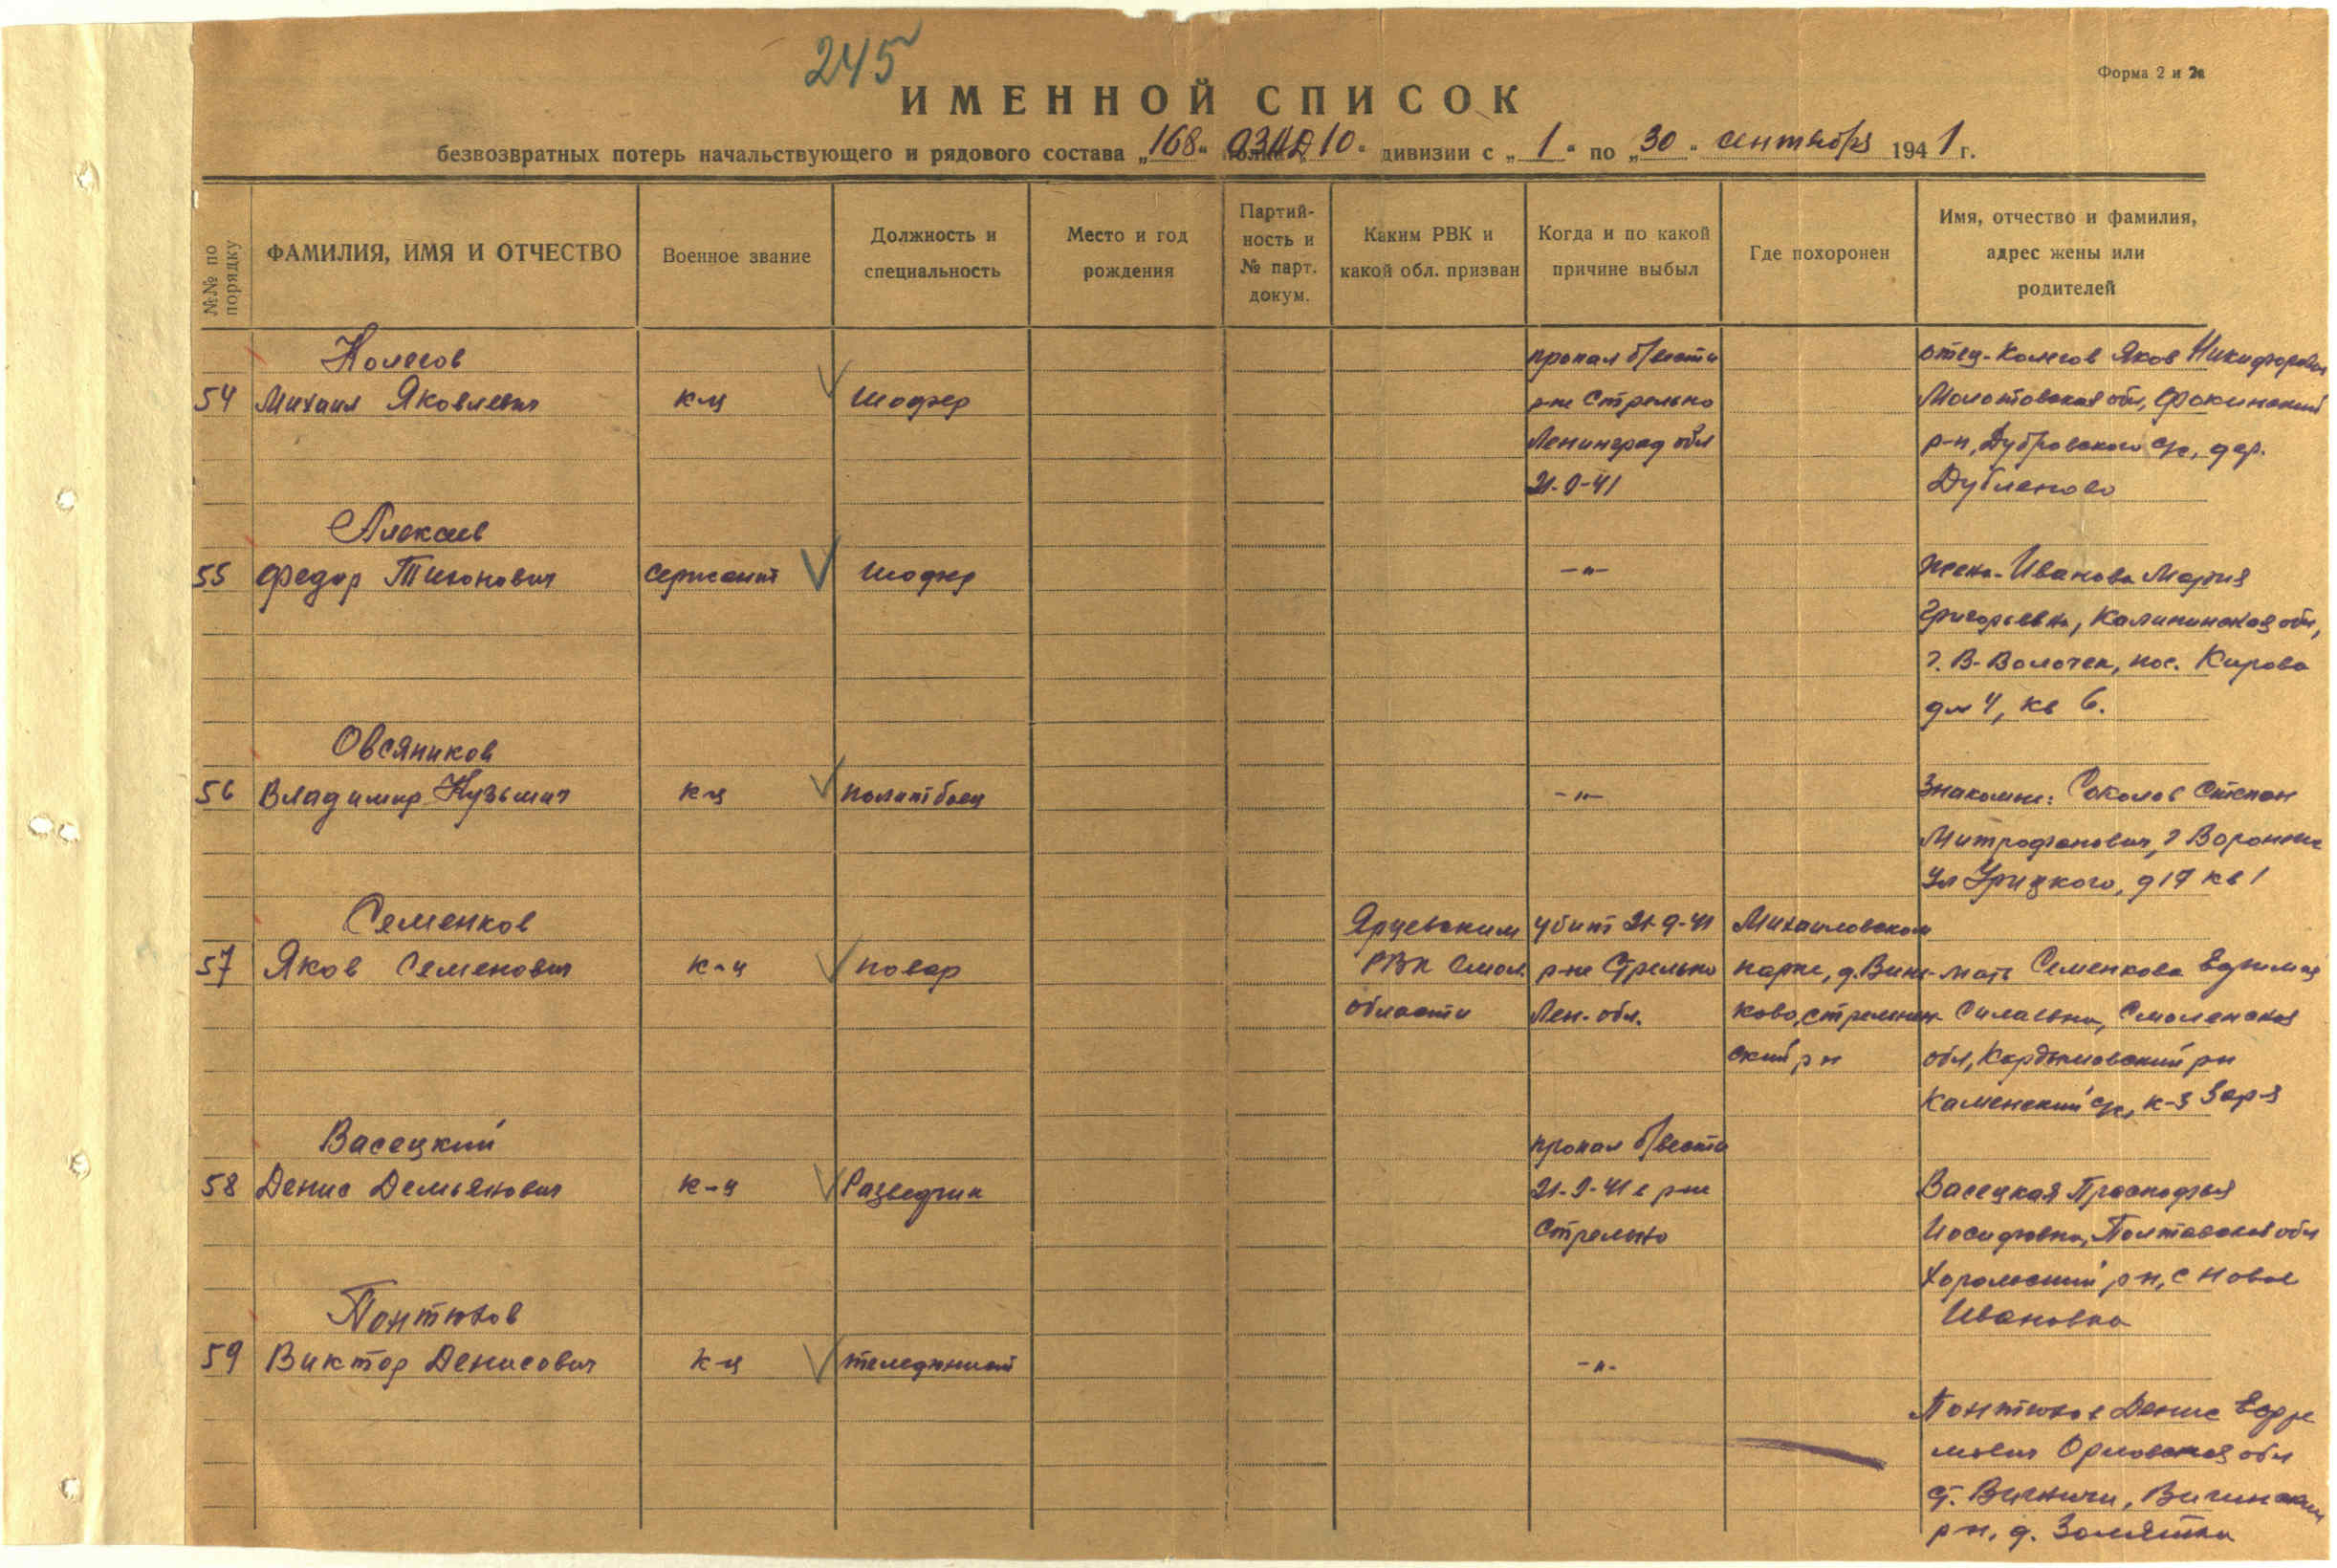 245
Форма 2 и 2а
ИМЕННОЙ СПИСОК
безвозвратных потерь начальствующего и рядового состава „168“ ОЗАД 10“ дивизии с „1“ по „30“ сентября 1941 г.
№№ по порядку
ФАМИЛИЯ, ИМЯ И ОТЧЕСТВО
Военное звание
Должность и
специальность
Место и год
рождения
Партий-
ность и
№ парт.
докум.
Каким РВК и
какой обл. призван
Когда и по какой
причине выбыл
Где похоронен
Имя, отчество и фамилия,
адрес жены или
родителей
54
Колегов
Михаил Яковлевич
к-ц
шофер
пропал б/вести
р-не Стрельно
Ленинград обл
21-9-41
отец-Колегов Яков Никифорович
Молотовская обл, Фокинский
р-н, Дубровского с/с, дер.
Дубленово
55
Алексеев
Федор Тихонович
сержант
шофер
-"-
жена-Иванова Мария
Григорьевна, Калининская обл,
г. В-Волочек, пос. Кирова
дм 4, кв 6.
56
Овсяников
Владимир Кузьмич
к-ц
политбоец
-"-
Знакомые: Соколов Степан
Митрофанович, г Воронеж
ул Урицкого, д 17 кв 1
57
Семенков
Яков Семенович
к-ц
повар
Ярцевским
РВК Смол.
области
убит 21-9-41
р-не Стрельно
Лен-обл.
Михайловском
парке,
ский р н
мать Семенкова Ефимия
Силаевна, Смоленская
обл, Кардымовский рн
Каменский с/с, к-з Заря
58
Васецкий
Денис Демьянович
к-ц
Разведчик
пропал б/вести
21-9-41 в р-не
Стрельно
Васецкая Просковья
Иосифовна, Полтавская обл
Хорольский р н, с Новое
Ивановка
59
Понтюхов
Виктор Денисович
к-ц
телефонист
-"-
Понтюхов Денис Ефре
мович Орловская обл
р-н, д.